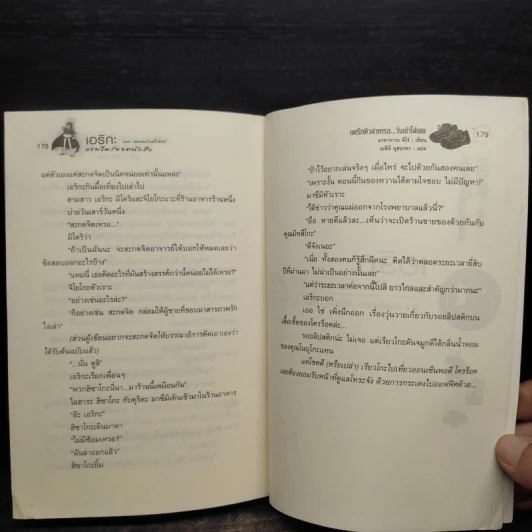 178
เอริกะ
แต่ตัวเองแค่สะกดจิตเป็นนิดหน่อยเท่านั้นแหละ"
เอริกะกินมื้อเที่ยงไปเล่าไป
สามสาว เอริกะ มิโดริและจิโยโกะมาที่ร้านอาหารร้านหนึ่ง
บ่ายวันเสาร์วันหนึ่ง
"สะกดจิตเหรอ..."
มิโดริว่า
"ถ้าเป็นฉันนะ จะสะกดจิตอาจารย์ให้บอกให้หมดเลยว่า
ข้อสอบออกอะไรบ้าง"
"แหมนี่ เธอคิดอะไรที่มันสร้างสรรค์กว่านี้หน่อยไม่ได้เหรอ?"
จิโยโกะหัวเราะ
"อย่างเช่นอะไรล่ะ?"
"ก็อย่างเช่น สะกดจิต กล่อมให้ผู้ชายที่ชอบมาสารภาพรัก
ไงเล่า"
(ส่วนผู้เขียนอยากจะสะกดจิตให้บรรณาธิการคิดเอาเองว่า
ได้รับต้นฉบับแล้ว)
"...นั่น ดูสิ"
เอริกะเรียกเพื่อนๆ
"พวกฮิซาโกะนี่นา...มาร้านนี้เหมือนกัน"
โอฮาระ ฮิซาโกะ กับคุริตะ มาซึมิเดินเข้ามาในร้านอาหาร
"อ๊ะ เอริกะ"
ฮิซาโกะเดินมาหา
"ไม่มีซ้อมเหรอ?"
"ฉันลาออกแล้ว"
ฮิซาโกะยิ้ม
179
อาคากาวะ จิโร่ : เขียน
"ถ้าไว้อยากเล่นจริงๆ เมื่อไหร่ จะไปด้วยกันสองคนเลย"
"เพราะงั้น ตอนนี้กินของหวานได้ตามใจชอบ ไม่มีปัญหา"
มาซึมิหัวเราะ
"ได้ข่าวว่าคุณแม่ออกจากโรงพยาบาลแล้วนี่?"
"อือ หายดีแล้วละ...เห็นว่าจะเปิดร้านขายของด้วยกันกับ
คุณมิทสึโกะ"
"ดีจังเนอะ"
"เนี่ย ทั้งสองคนก็รู้สึกผิดนะ คิดได้ว่าตลอดระยะเวลายี่สิบ
ปีที่ผ่านมา ไม่น่าเป็นอย่างนั้นเลย"
"แต่ว่าระยะเวลาต่อจากนี้ไปสิ ยาวไกลและสำคัญกว่ามากนะ"
เอริกะบอก
เออ ใช่ เพิ่งนึกออก เรื่องวุ่นวายเกี่ยวกับรอยลิปสติกบน
เสื้อเชิ้ตของโครร็อคล่ะ...
รอยลิปสติกน่ะ ไม่เจอ แต่เรียวโกะดันจมูกดีได้กลิ่นน้ำหอม
ของคุณโนบุโกะแทน
แต่โชคดี (หรือเปล่า) เรียวโกะไปเที่ยวออนเซ็นพอดี โครร็อค
เลยต้องยอมรับหน้าที่ดูแลโทระจัง ด้วยการกระเตงไปออฟฟิศด้วย...